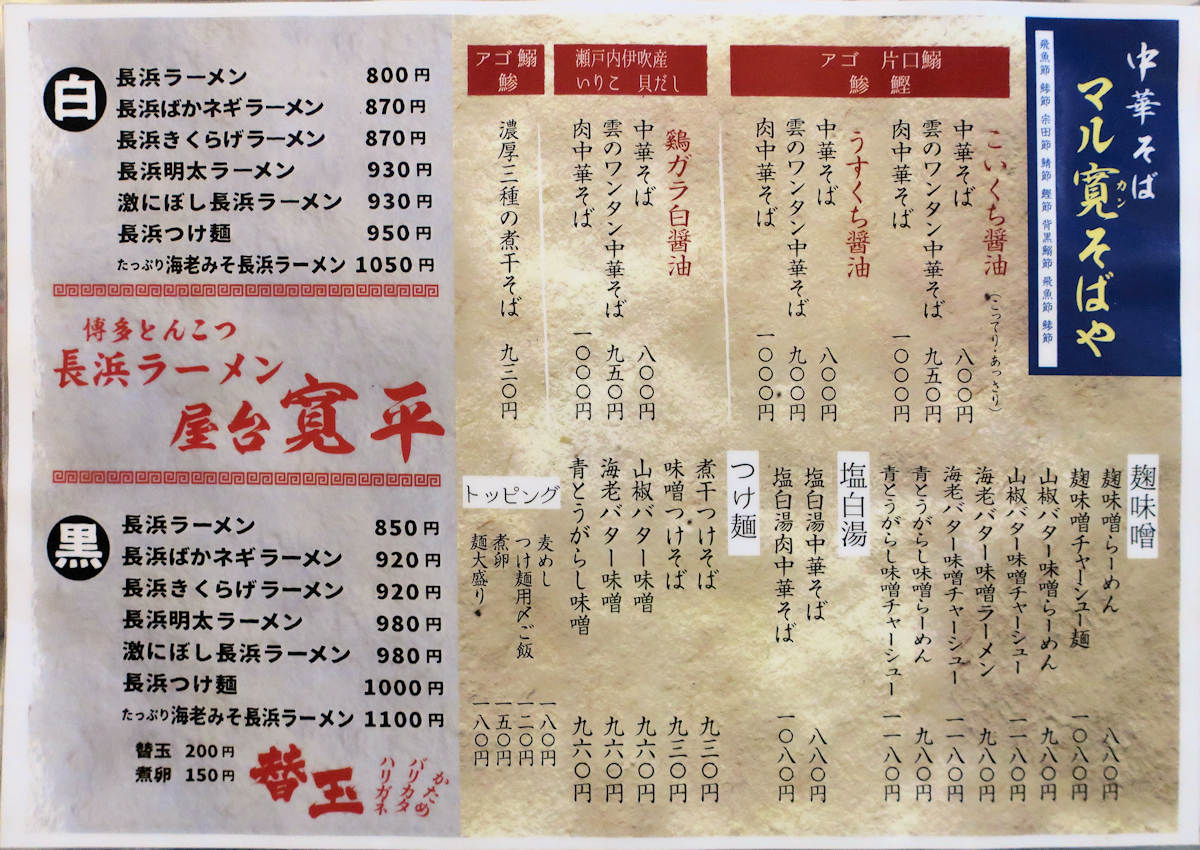 中華そば
マル寛そばや
カン
飛魚節 鯵節 宗田節 鯖節 鰹節 背黒鰯節 飛魚節 鯵節
アゴ 片口鰯
鯵 鰹
こいくち醤油
(こってり・あっさり)
中華そば 八〇〇円
雲のワンタン中華そば 九五〇円
肉中華そば 一〇〇〇円
うすくち醤油
中華そば 八〇〇円
雲のワンタン中華そば 九〇〇円
肉中華そば 一〇〇〇円
瀬戸内伊吹産
いりこ 貝だし
鶏ガラ白醤油
中華そば 八〇〇円
雲のワンタン中華そば 九五〇円
肉中華そば 一〇〇〇円
アゴ 鰯
鯵
濃厚三種の煮干そば 九三〇円
麹味噌
麹味噌らーめん 八八〇円
麹味噌チャーシュー麺 一〇八〇円
山椒バター味噌らーめん 九八〇円
山椒バター味噌チャーシュー 一一八〇円
海老バター味噌ラーメン 九八〇円
海老バター味噌チャーシュー 一一八〇円
青とうがらし味噌らーめん 九八〇円
青とうがらし味噌チャーシュー 一一八〇円
塩白湯
塩白湯中華そば 八八〇円
塩白湯肉中華そば 一〇八〇円
つけ麺
煮干つけそば 九三〇円
味噌つけそば 九三〇円
山椒バター味噌 九六〇円
海老バター味噌 九六〇円
青とうがらし味噌 九六〇円
トッピング
麦めし 一八〇円
つけ麺用〆ご飯 一二〇円
煮卵 一五〇円
麺大盛り 一八〇円
白
長浜ラーメン 800円
長浜ばかネギラーメン 870円
長浜きくらげラーメン 870円
長浜明太ラーメン 930円
激にぼし長浜ラーメン 930円
長浜つけ麺 950円
たっぷり海老みそ長浜ラーメン 1050円
博多とんこつ
長浜ラーメン
屋台寛平
黒
長浜ラーメン 850円
長浜ばかネギラーメン 920円
長浜きくらげラーメン 920円
長浜明太ラーメン 980円
激にぼし長浜ラーメン 980円
長浜つけ麺 1000円
たっぷり海老みそ長浜ラーメン 1100円
替玉 200円
煮卵 150円
替玉
かため
バリカタ
ハリガネ